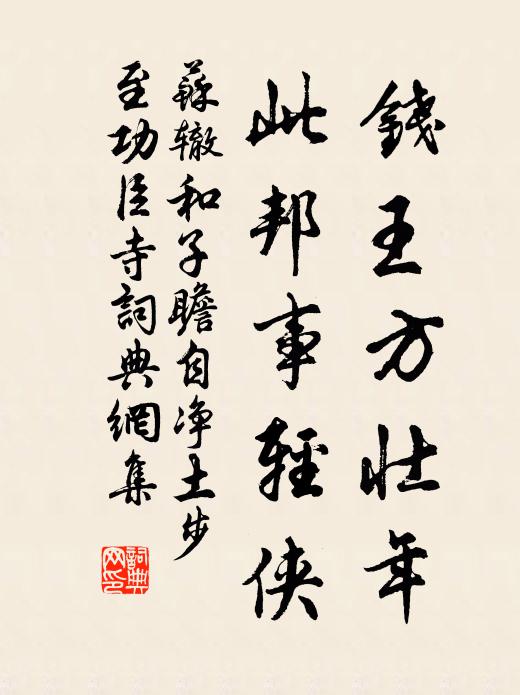 錢王方壯年
此邦事輕俠
蘇辙和子瞻自净土步
至功臣寺詞典網集
詞典网印